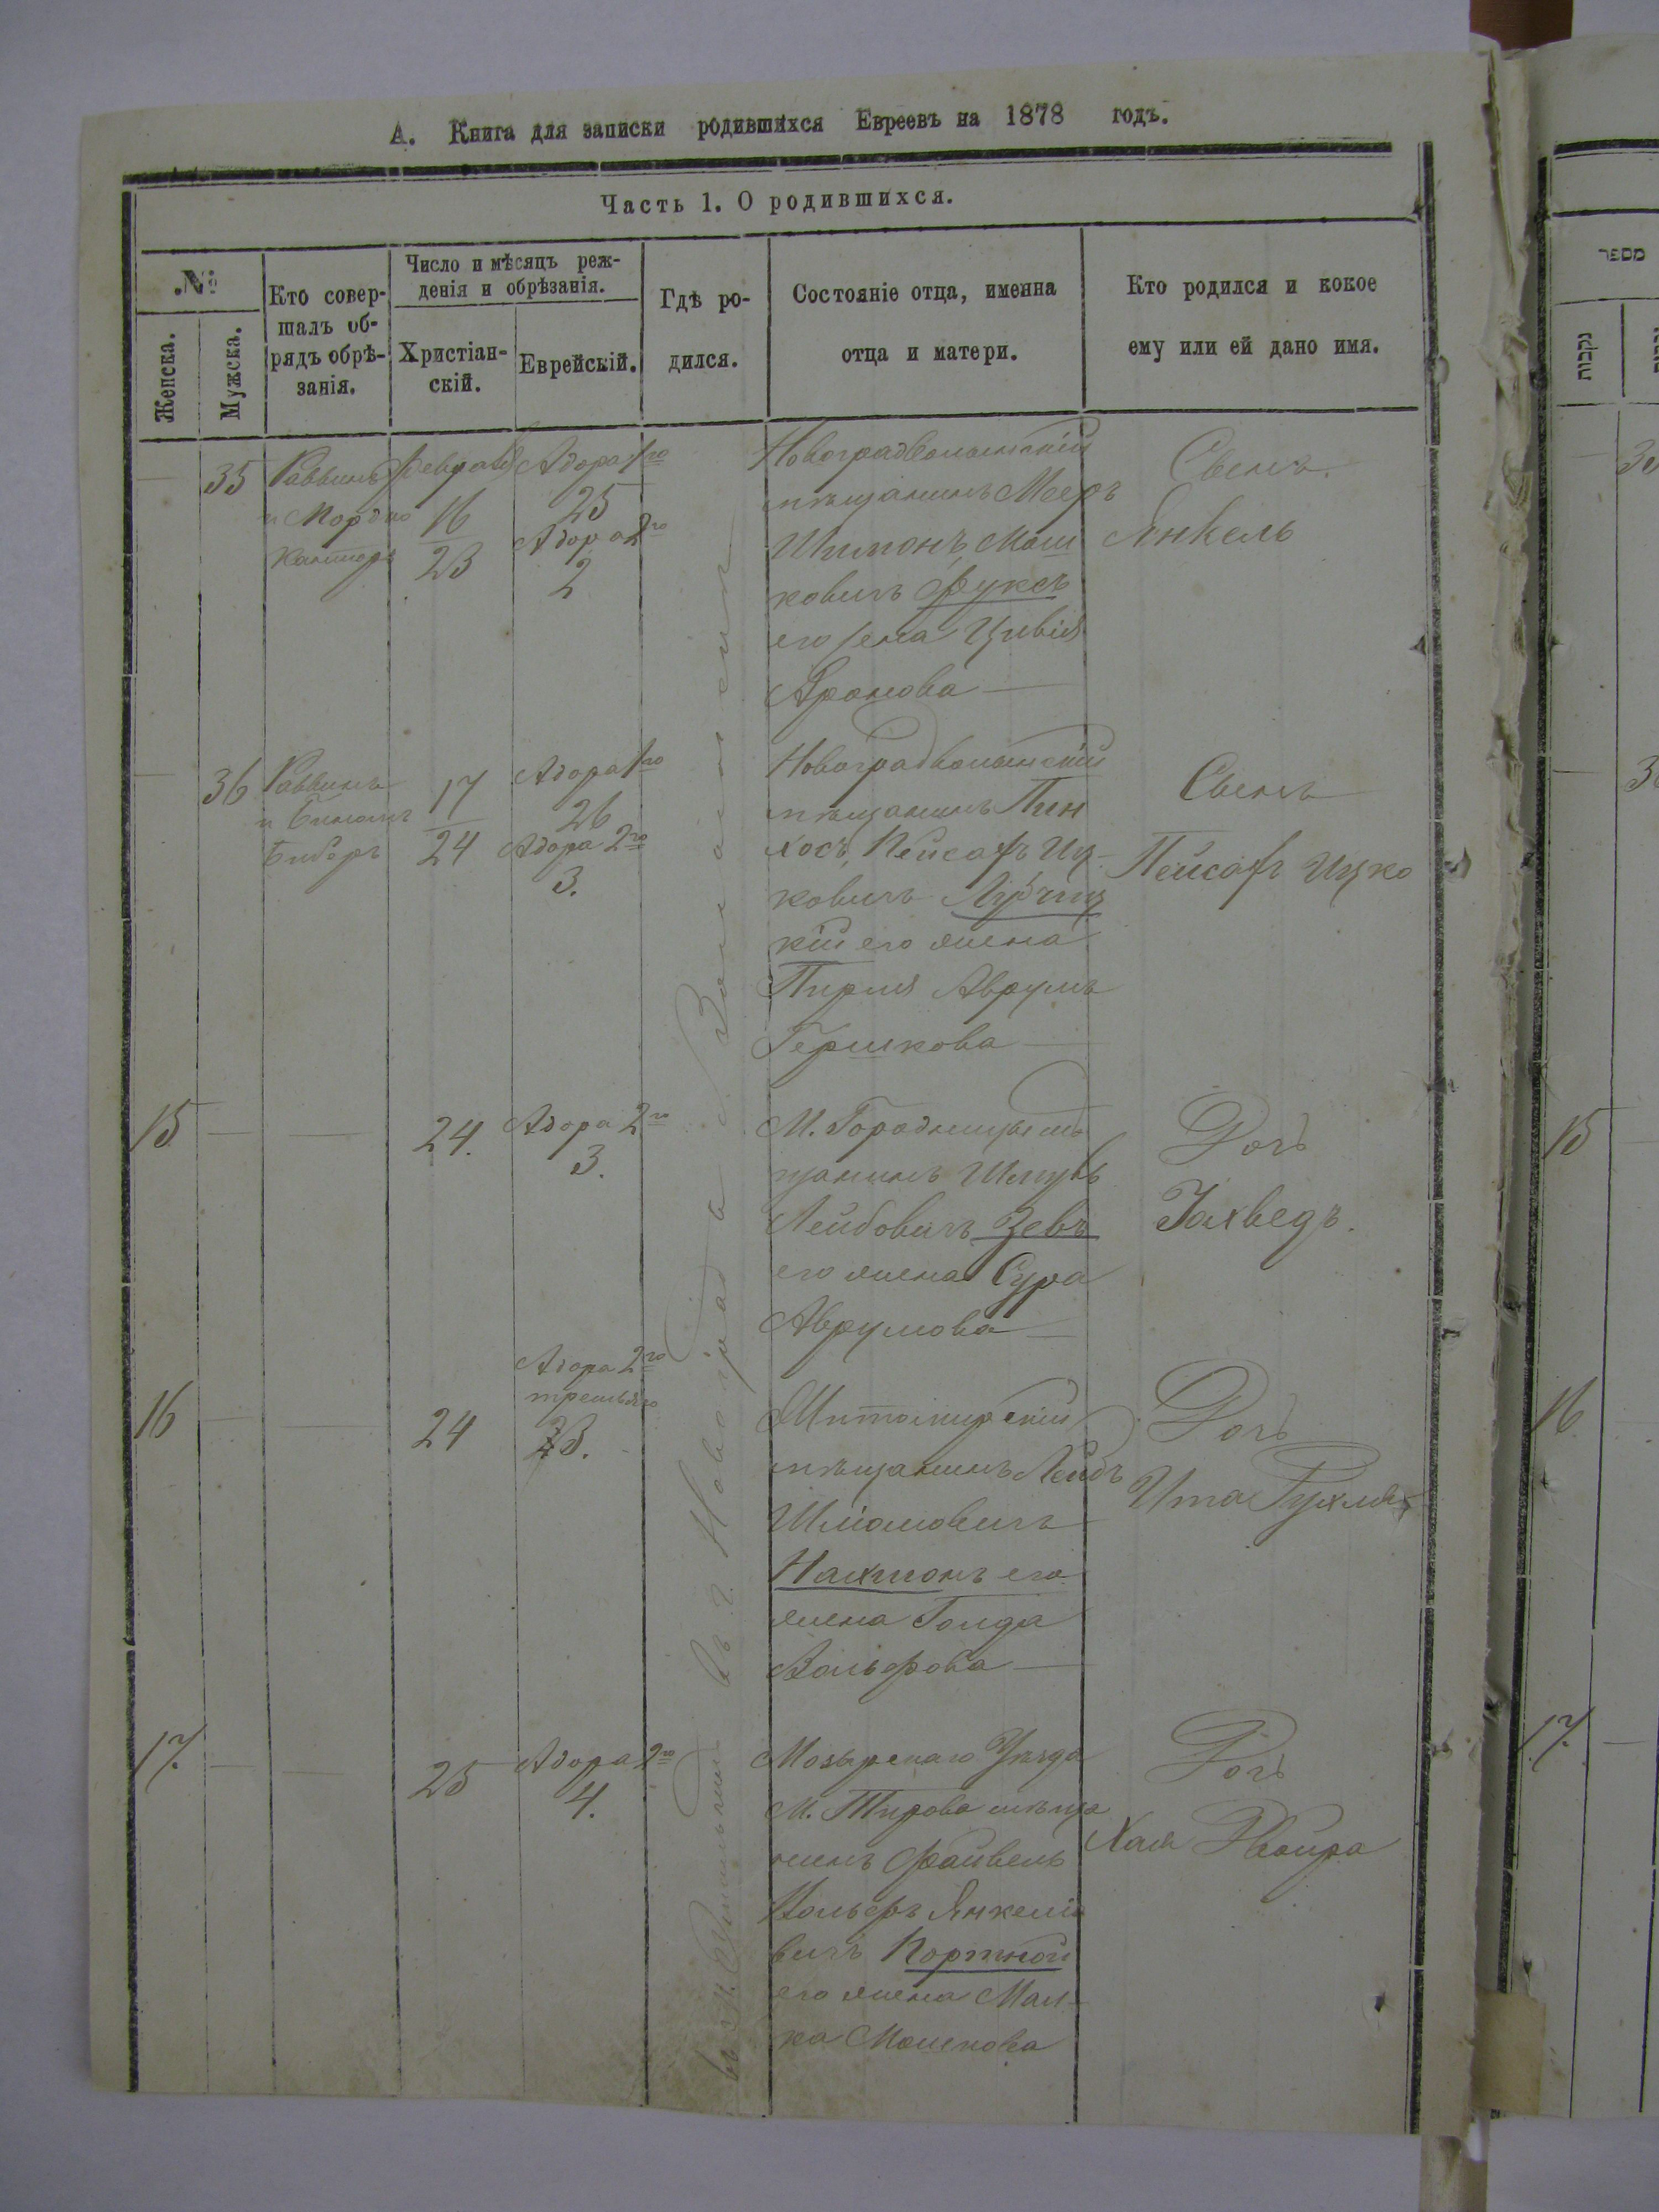 А. Книга для записки родившихся Евреевъ на 1878 годъ.
Часть 1. О родившихся.
№
Женска.
Мужска.
Кто совер-
шалъ об-
рядъ обрѣ-
занія.
Число и мѣсяцъ реж-
денія и обрѣзанія.
Христіан-
скій.
Еврейскій.
Гдѣ ро-
дился.
Состояніе отца, именна
отца и матери.
Кто родился и кокое
ему или ей дано имя.
35
Раввинъ
и Мордко
Кантеръ
Февраля
16
23
Адора 1го
25
Адора 2го
2
Новоградволынскій
мѣщанинъ Мееръ
Шимонъ Мош
ковичъ Фуксъ
его жена Цивія
Аронова
Сынъ
Янкель
36
Раввинъ
и
Биберъ
17
24
Адора 1го
26
Адора 2го
3.
Новоградволынскій
мѣщанинъ Пин
хосъ Пейсахъ Иц-
ковичъ
кій его жена
Перля Аврумъ
Гершкова
Сынъ
Пейсахъ Ицко
15
24.
Адора 2го
3.
М. Городницы мѣ
щанинъ Шмуль
Лейбовичъ Зевъ
его жена Сура
Аврумова
Дочь
Іахведъ.
16
24
Адора 2го
третьяго
3.
Житомирскій
мѣщанинъ Лейбъ
Шліомовичъ
его
жена Голда
Вольфова
Дочь
Ита Рухля
17.
25
Адора 2го
4.
Мозырскаго Уѣзда
М. Турова мѣща
нинъ Файвель
Вольфъ Янкеліо
вичъ Портной
его жена Мал-
ка Мошкова
Дочь
Хая Двойра
въ г. Новоградъ Волынскѣ
מספר
נקבות
15
16
17.